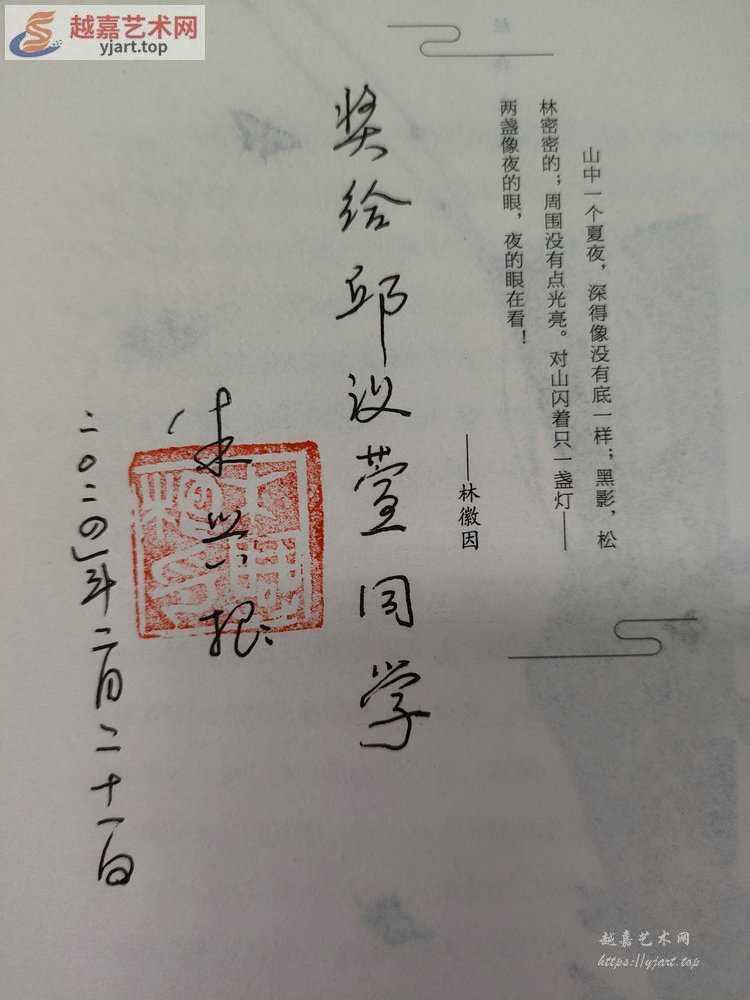 越嘉艺术网
yjart.top
山中一个夏夜，深得像没有底一样；黑影，松
林密密的；周围没有点光亮。对山闪着只一盏灯——
两盏像夜的眼，夜的眼在看！
——林徽因
奖给邱议萱同学
朱兴根
二〇二四年二月二十一日
越嘉艺术网
https://yjart.top